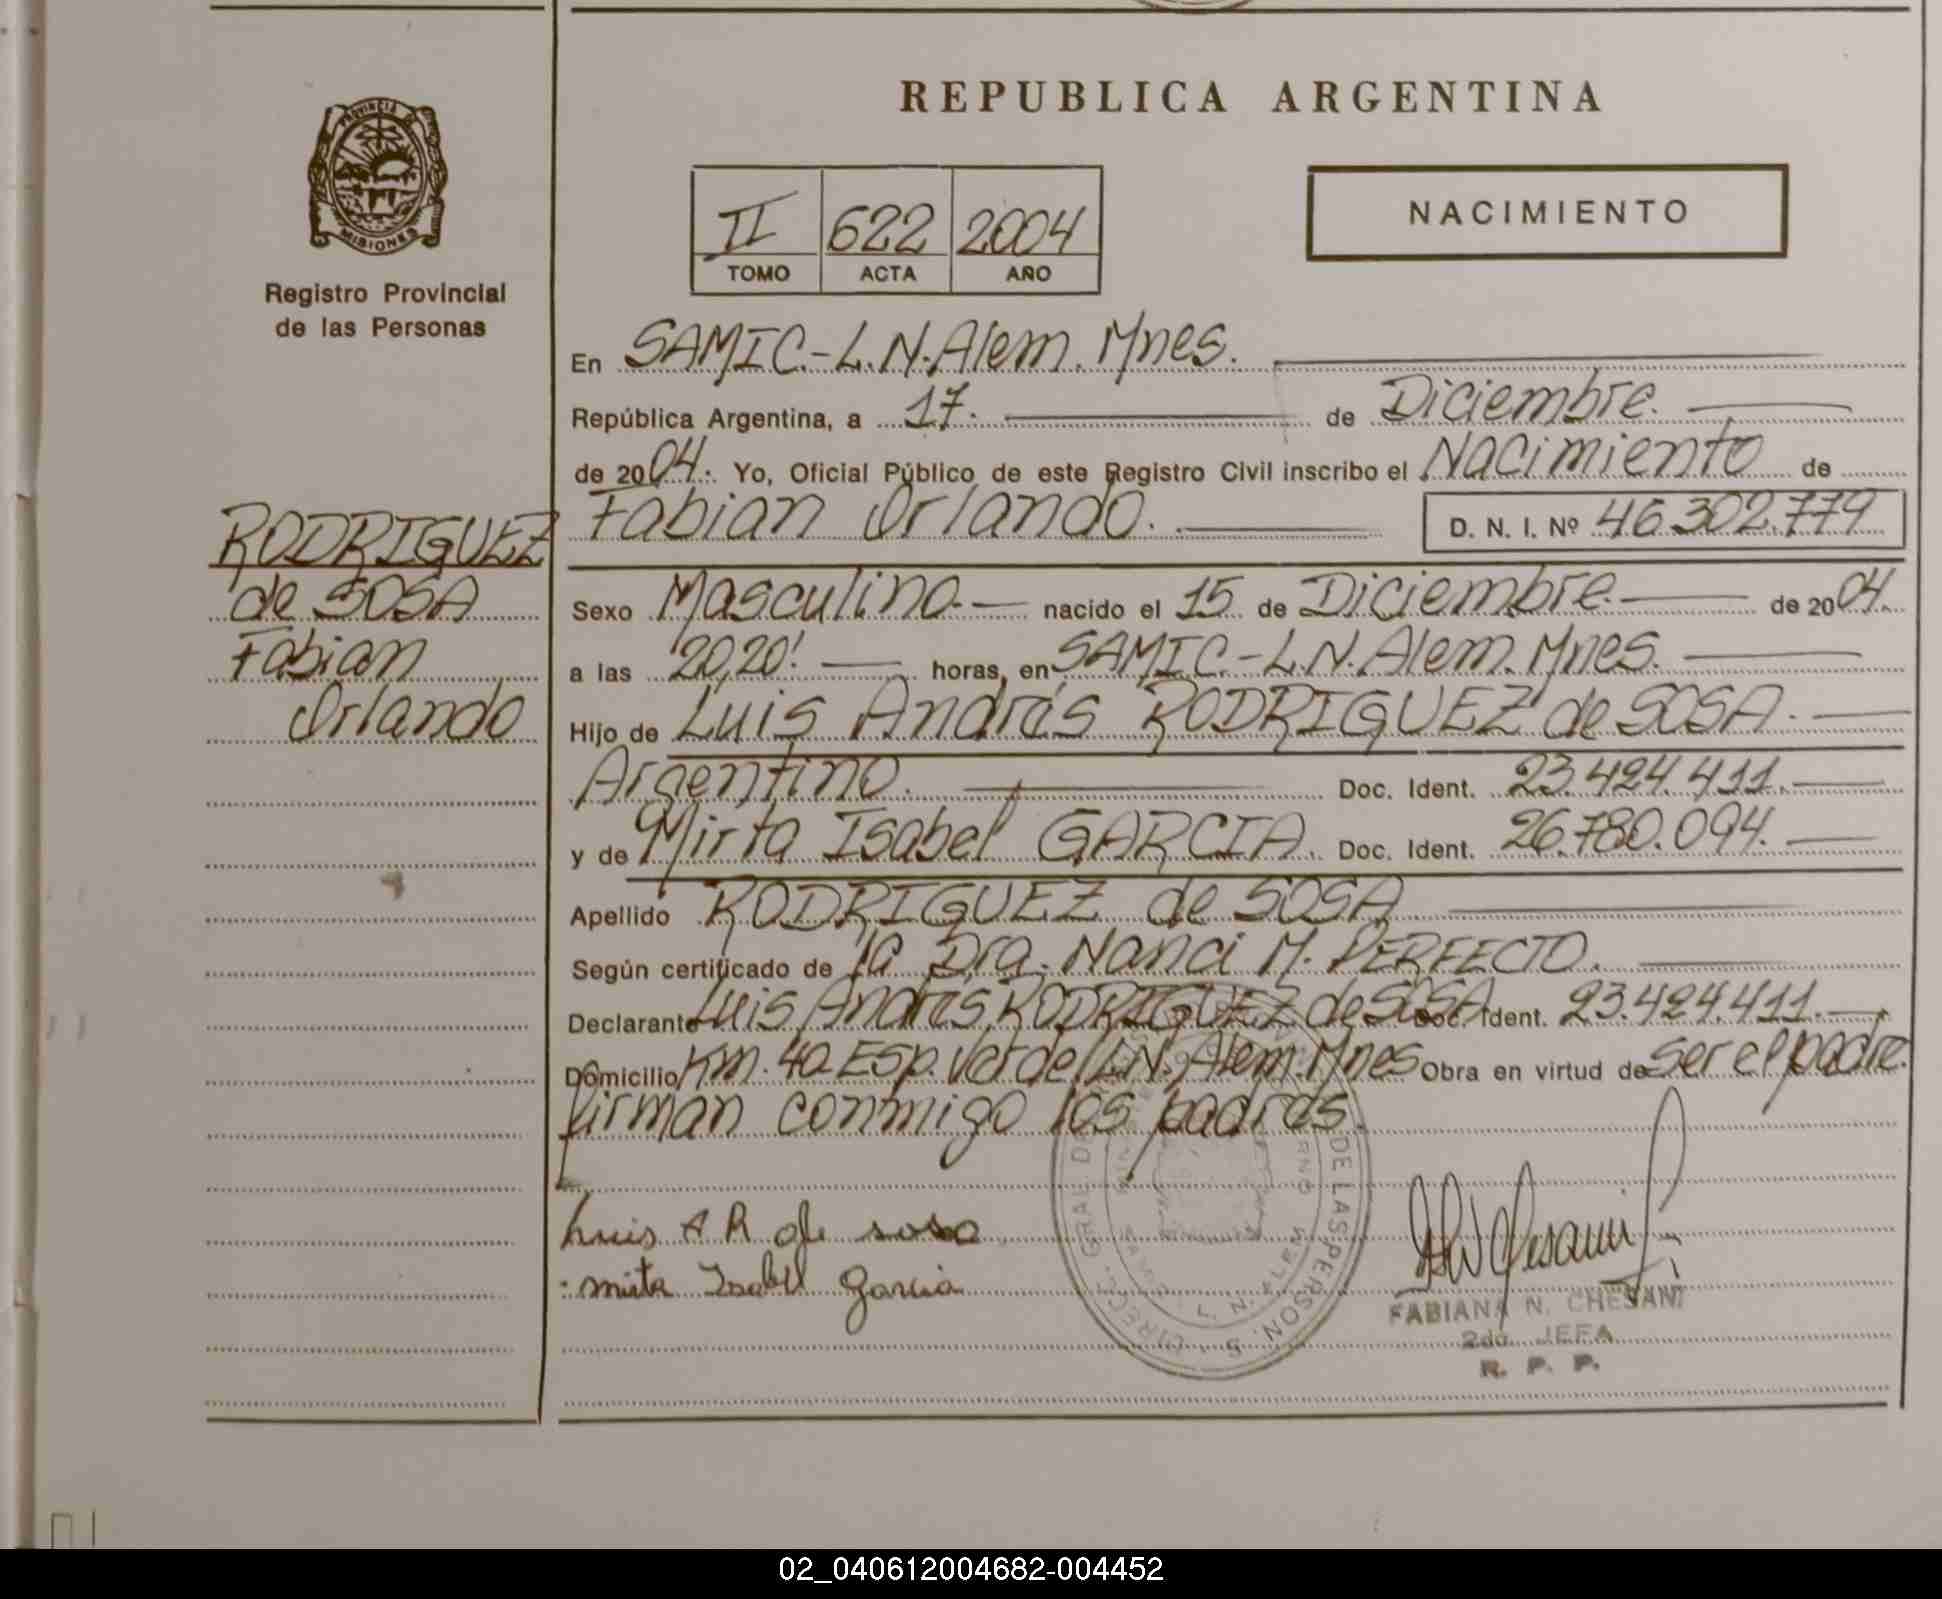 REPUBLICA ARGENTINA
PROVINCIA DE
MISIONES
Registro Provincial
de las Personas
II 622 2004
TOMO ACTA AÑO
NACIMIENTO
En SAMIC-L.N.Alem. Mnes.
República Argentina, a 17. de Diciembre.
de 2004. Yo, Oficial Público de este Registro Civil inscribo el Nacimiento de
Fabian Orlando. D. N. I. Nº 46.302.779
RODRIGUEZ
de SOSA
Fabian
Orlando
Sexo Masculino. nacido el 15 de Diciembre. de 2004.
a las 20,20! horas, en SAMIC-L.N.Alem. Mnes.
Hijo de Luis Andrés RODRIGUEZ de SOSA.
Argentino. Doc. Ident. 23.424.411.
y de Mirta Isabel GARCIA. Doc. Ident. 26.780.094.
Apellido RODRIGUEZ de SOSA
Según certificado de la Dra. Nanci M. PERFECTO.
Declarante Luis Andrés RODRIGUEZ de SOSA Doc. Ident. 23.424.411.
Domicilio Km. 40 Esp. Verde L.N. Alem. Mnes Obra en virtud de ser el padre.
firman conmigo los padres.
Luis A R de sosa
mirta Isabel garcia
DIRECC. GRAL. DE LAS PERSON.
L. N. ALEM
FABIANA N. CHESANI
2da. JEFA
R. P. P.
02_040612004682-004452